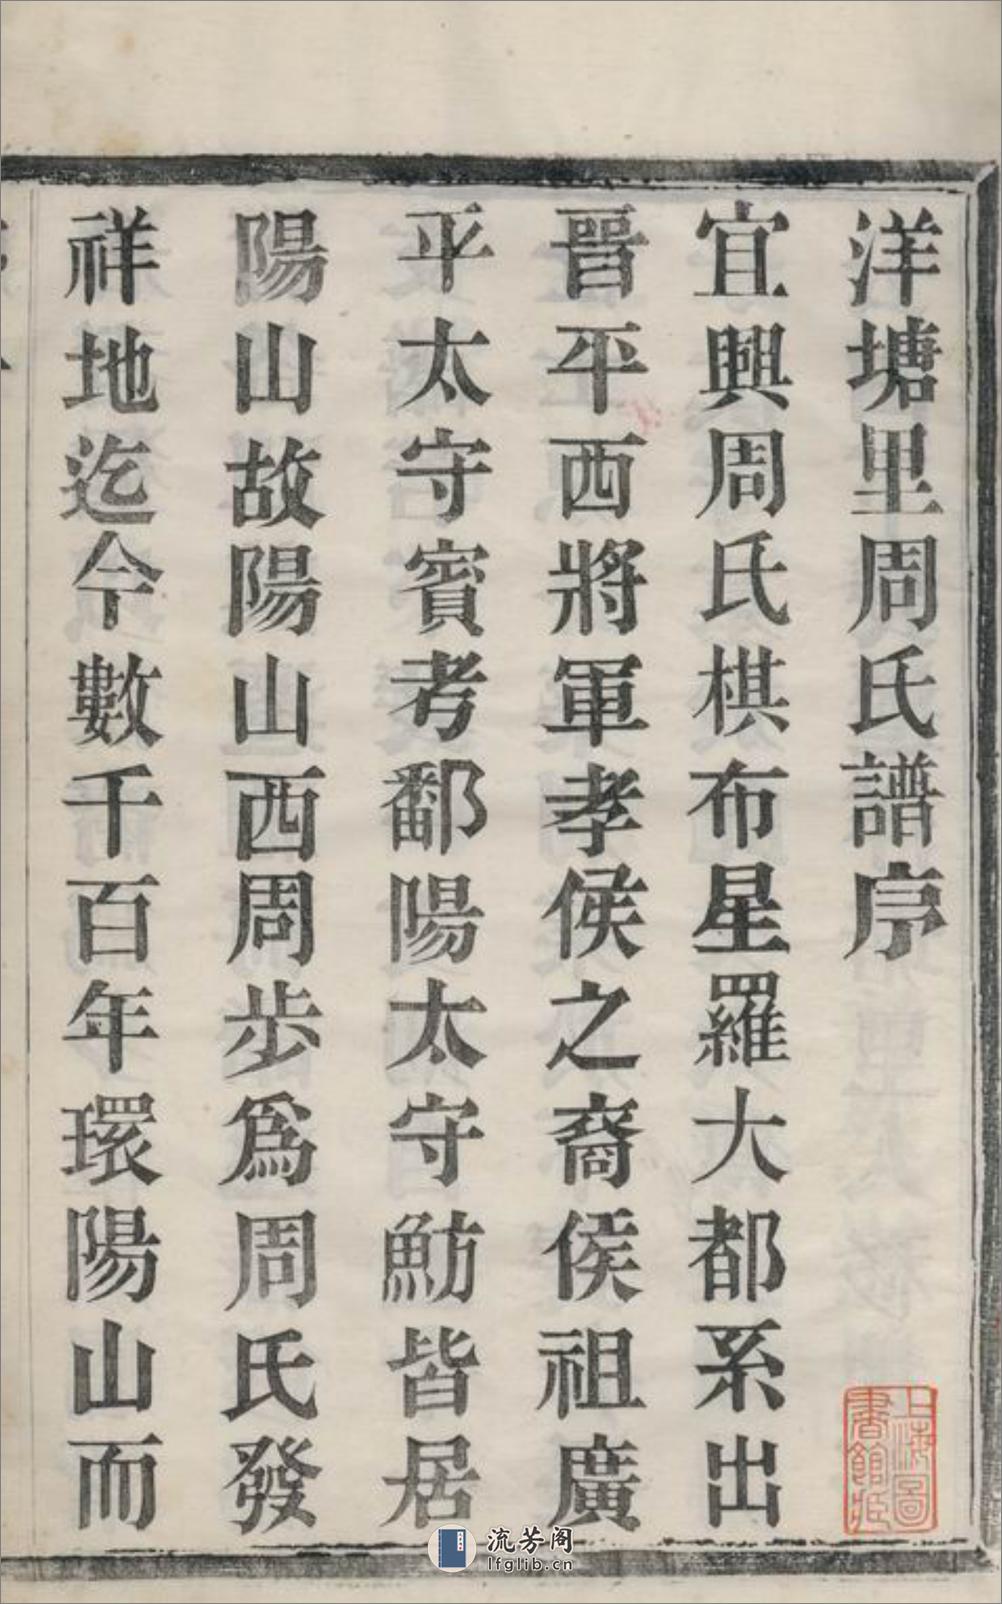 洋塘里周氏譜序
宜興周氏棋布星羅大都系出
晉平西將軍孝侯之裔侯祖廣
平太守賓考鄱陽太守魴皆居
陽山故陽山西周步爲周氏發
祥地迄今數千百年環陽山而
上海圖書館藏
流芳阁
lfglib.cn